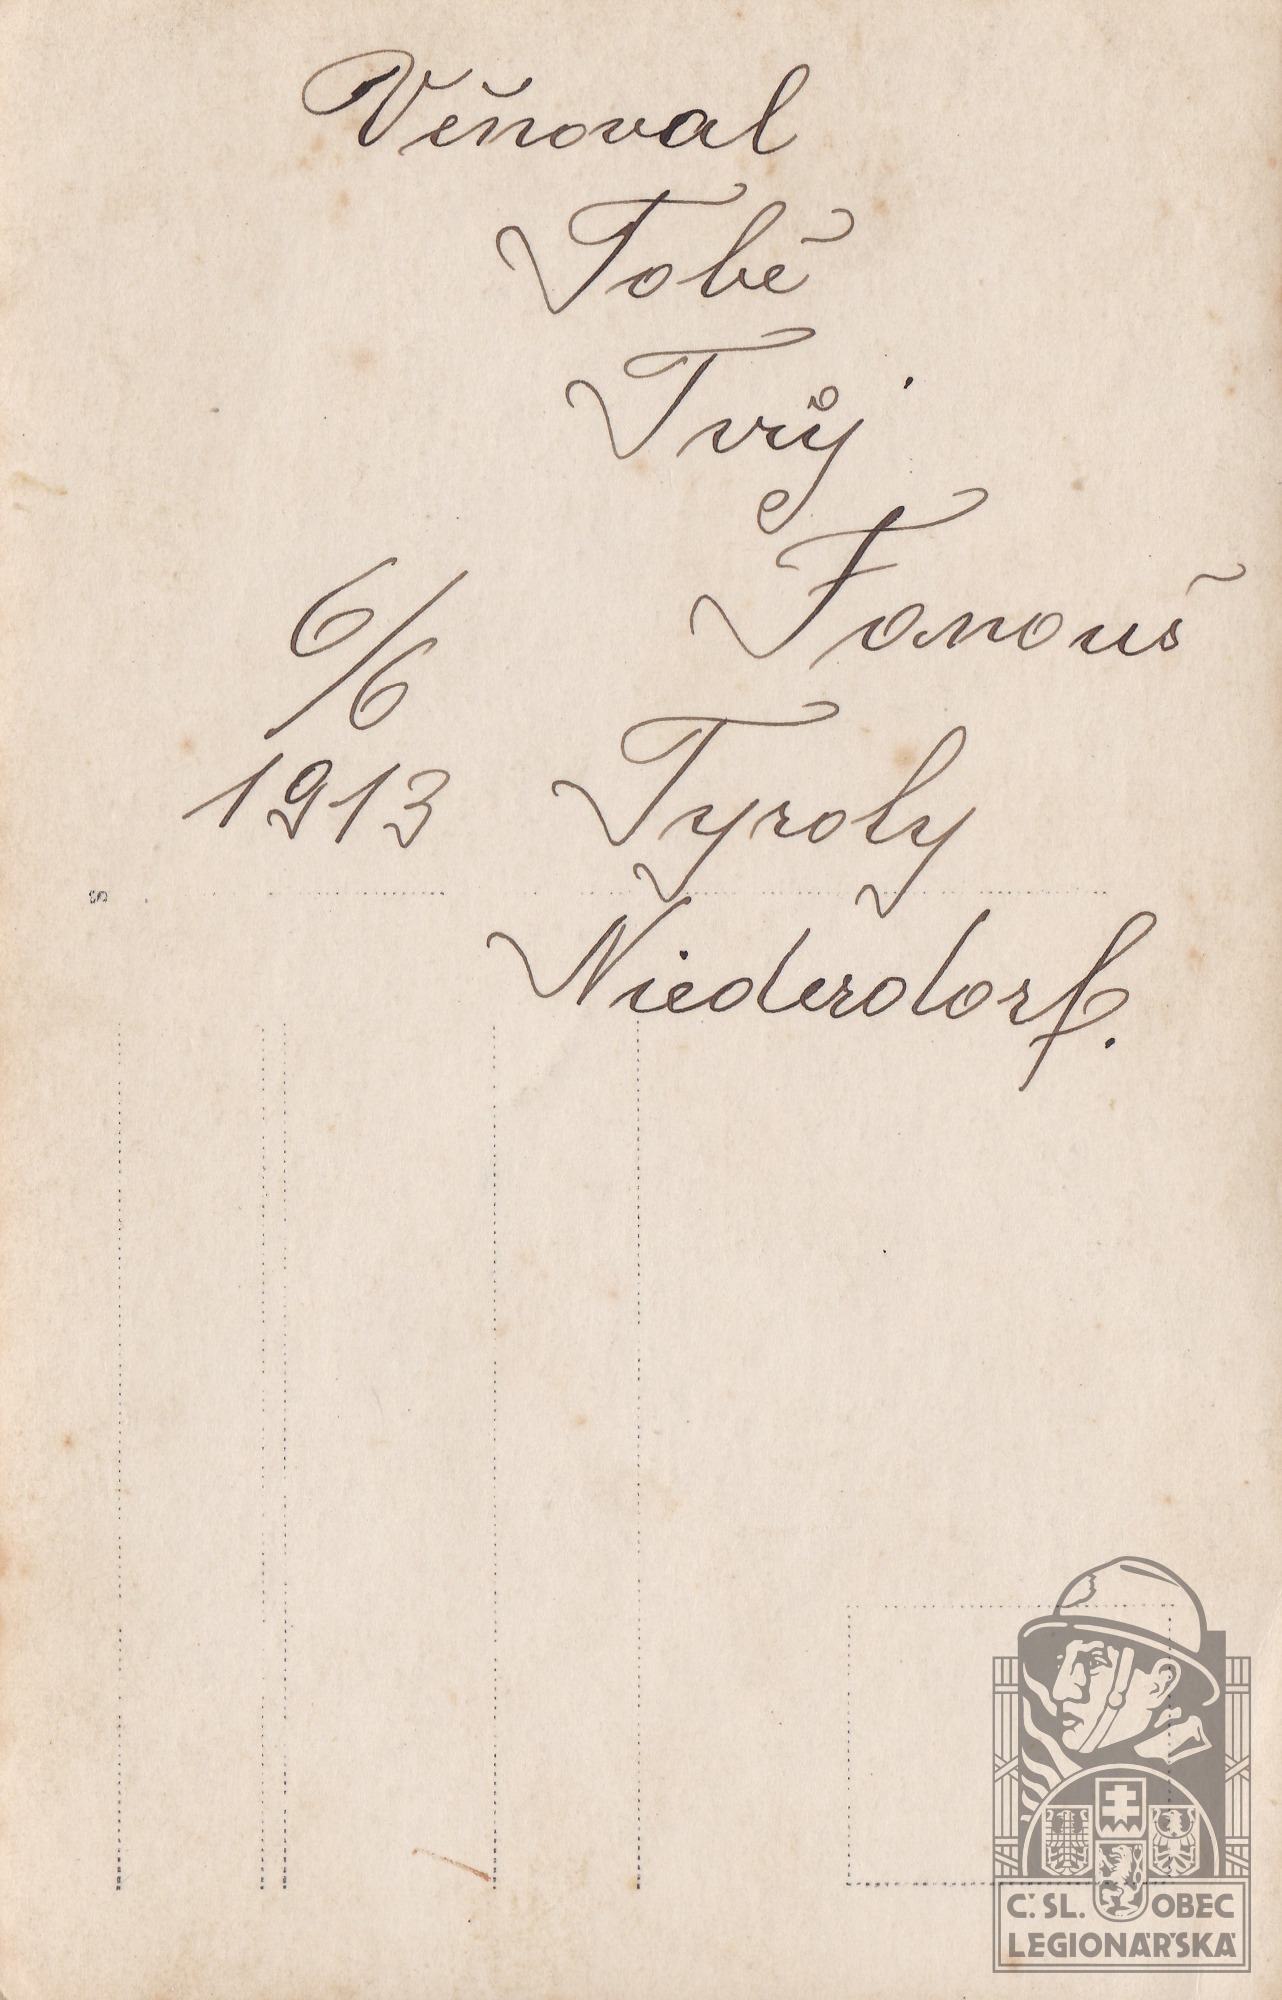 Věnoval
Tobě
Tvůj
Fanouš
6/6
1913 Tyroly
Niederdorf.
S
Č. SL. OBEC
LEGIONÁŘSKÁ